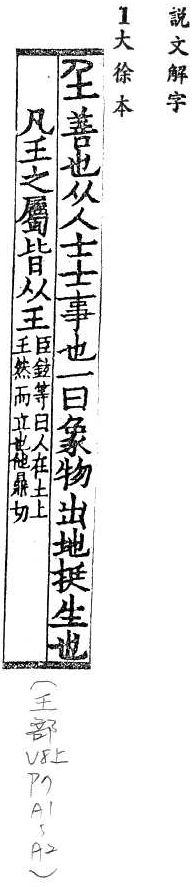 説文解字
1大徐本
𡈼善也从人士士事也一曰象物出地挺生也
凡𡈼之屬皆从𡈼
臣鉉等曰人在土上
𡈼然而立也他鼎切
(𡈼部 V8上 P7 A1 ~ A2)